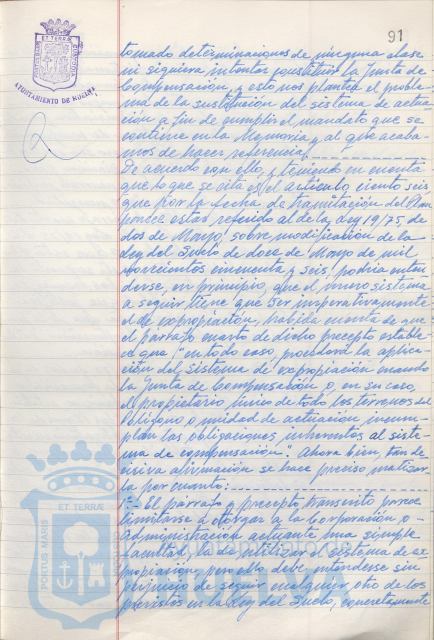 91
AYUNTAMIENTO DE HUELVA
tomado determinaciones de ninguna clase
ni siquiera intentar constituir la Junta de
Compensación, y esto nos plantea el proble-
ma de la sustitución del sistema de actua-
ción a fin de cumplir el mandato que se
contiene en la Memoria y al que acaba-
mos de hacer referencia.
De acuerdo con ello, y teniendo en cuenta
que lo que se cita es el artículo ciento seis,
que por la fecha de tramitación del Plan
parece estar referido al de la Ley 19/75, de
dos de Mayo, sobre modificación de la
Ley del Suelo de doce de Mayo de mil
novecientos cincuenta y seis, podría enten-
derse, en principio, que el nuevo sistema
a seguir tiene que ser imperativamente
el de expropiación, habida cuenta de que
el párrafo cuarto de dicho precepto estable-
ce que "en todo caso, procederá la aplica-
ción del sistema de expropiación cuando
la Junta de Compensación o, en su caso,
el propietario único de todos los terrenos del
Polígono o unidad de actuación incum-
plan las obligaciones inherentes al siste-
ma de compensación". Ahora bien, tan de-
cisiva afirmación se hace preciso matizar-
la por cuanto:
1º.- El párrafo y precepto transcrito parece
limitarse a otorgar a la Corporación o
Administración actuante una simple
facultad, la de utilizar el sistema de ex-
propiación, pero ello debe entenderse sin
perjuicio de seguir cualquier otro de los
previstos en la Ley del Suelo, concretamente
PORTUS MARIS ET TERRAE